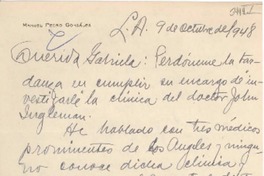 MANUEL PEDRO GONZÁLEZ
L.A. 9 de Octubre/1948
Querida Gabriela: Perdóneme la tar-
danza en cumplir su encargo de in-
vestigarle la clínica del doctor John
Ingleman.
He hablado con tres médicos
prominentes de Los Angeles y ningu-
no conoce dicha clínica y